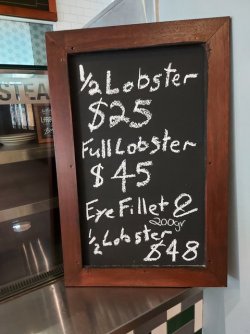 STEA
½ Lobster
$25
Full Lobster
$45
Eye Fillet &
200gr
½ Lobster
$48